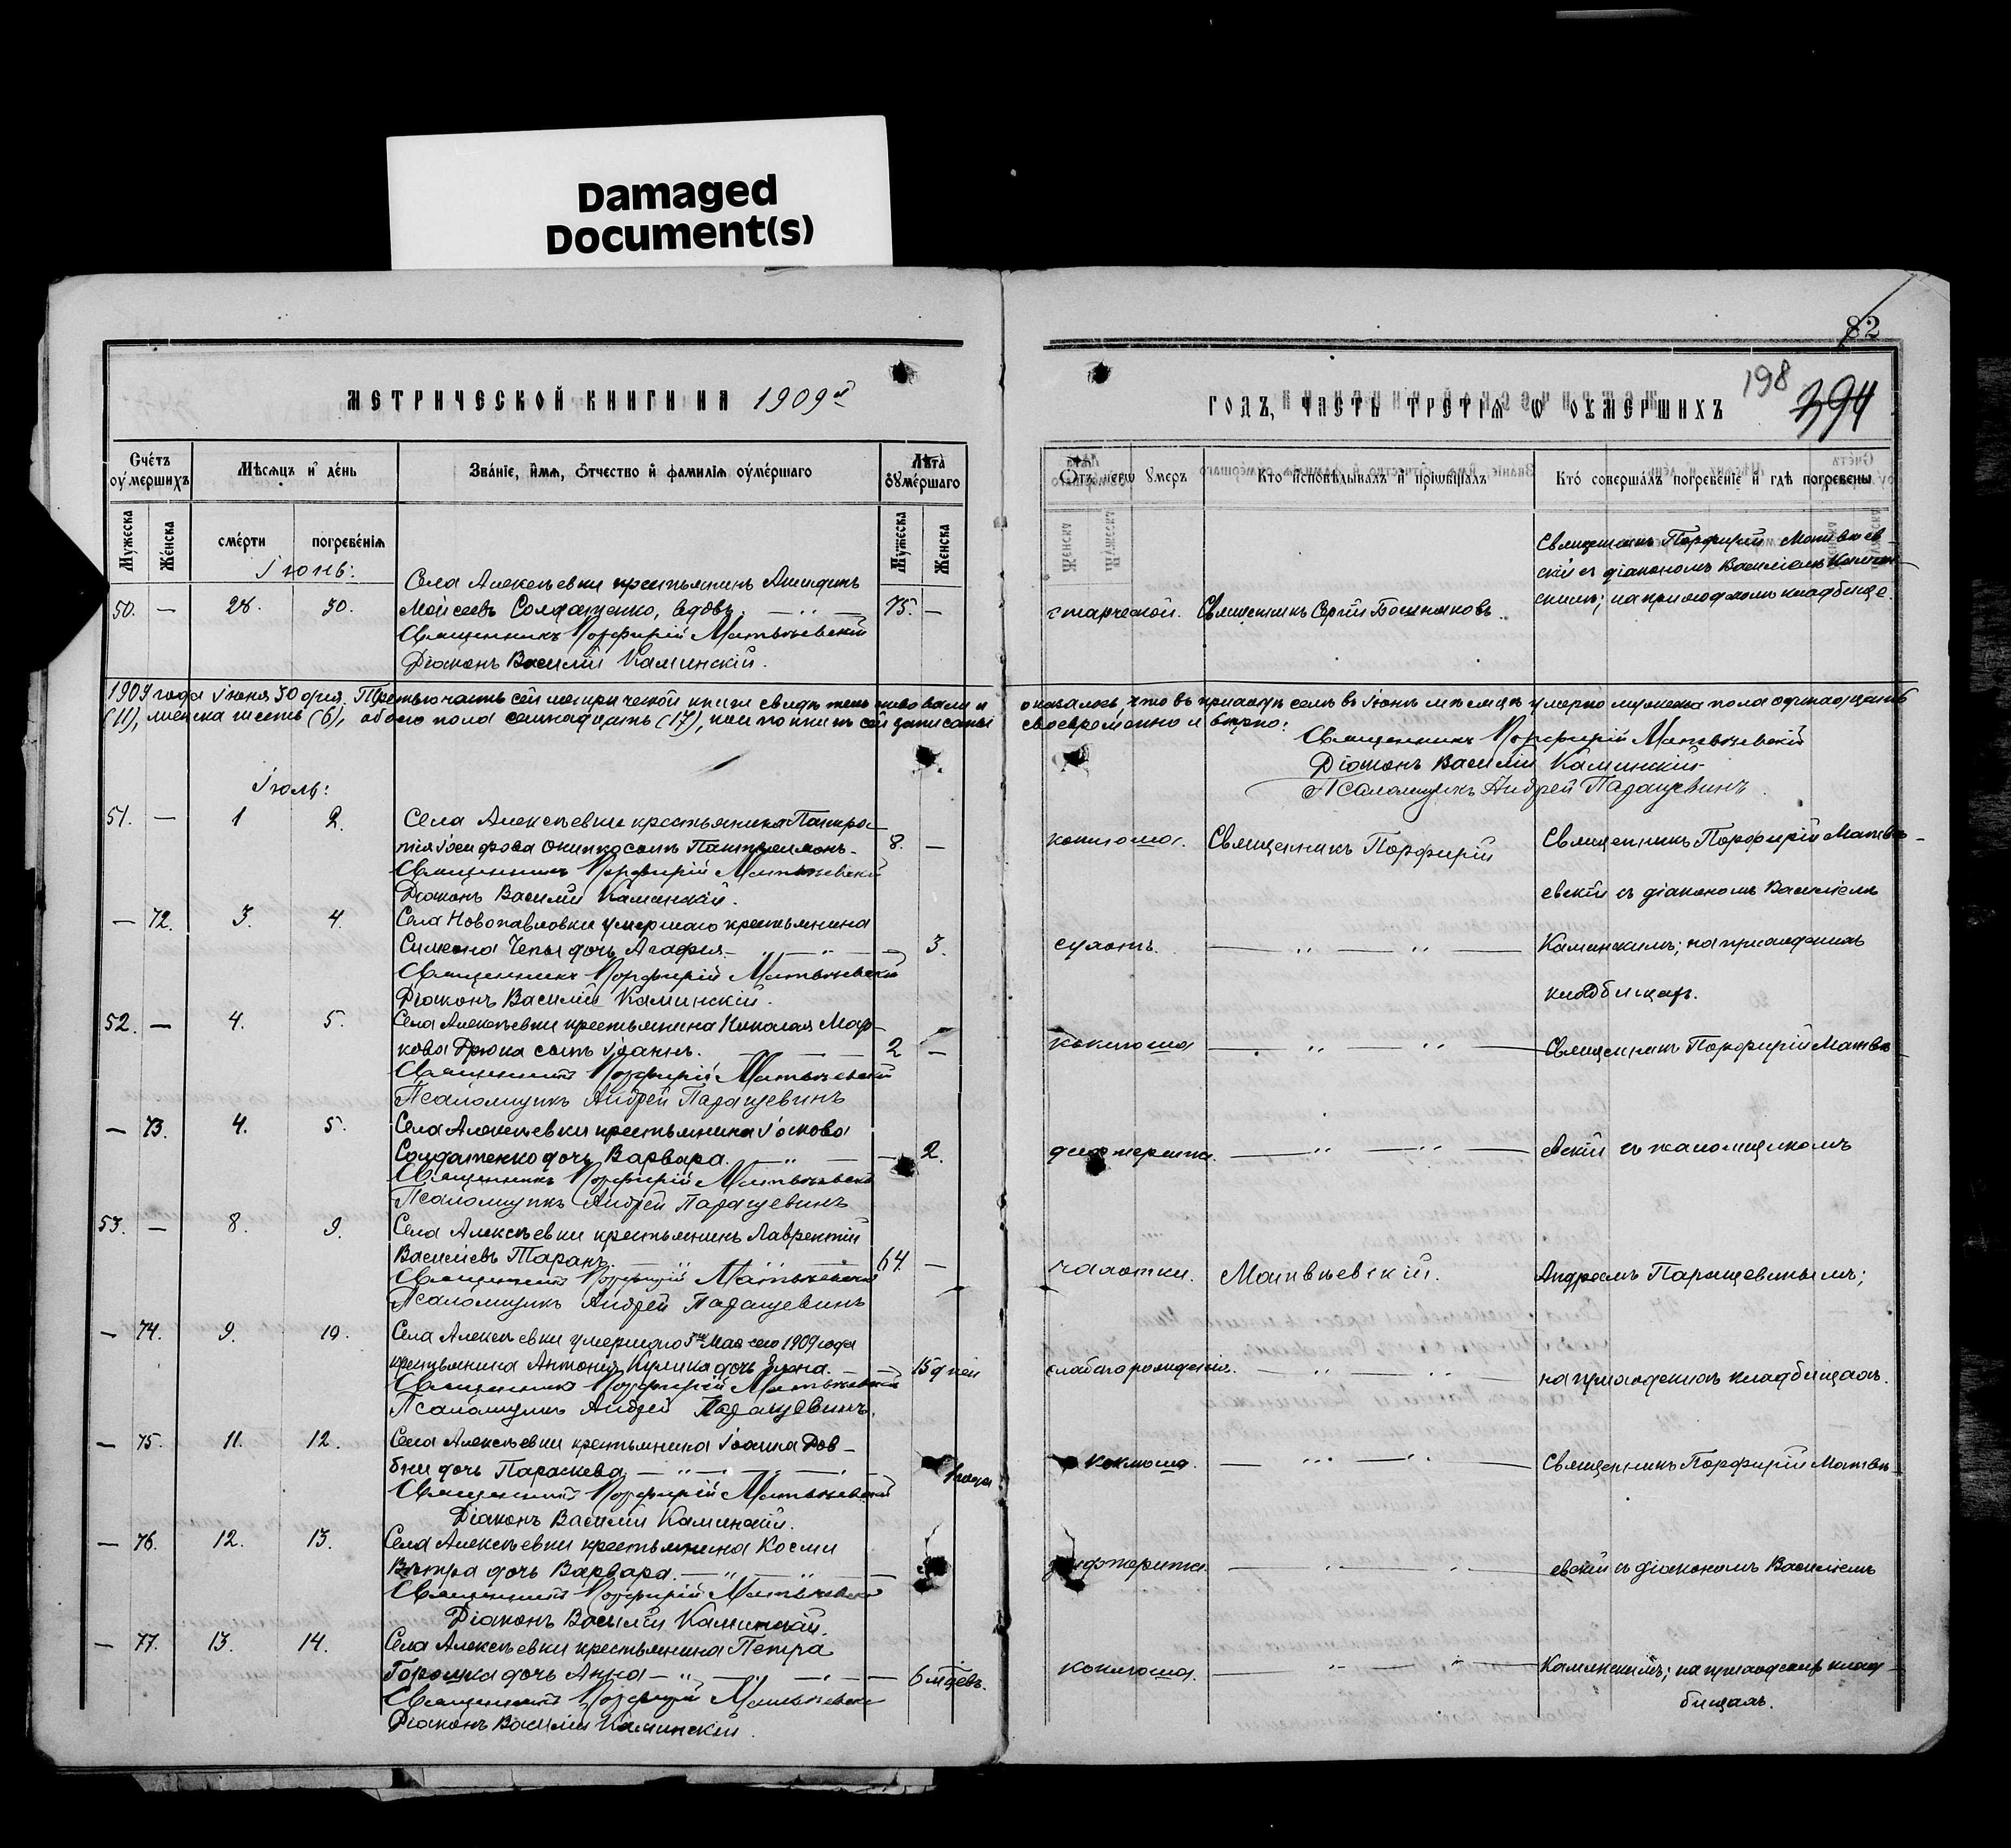 Damaged
Document(s)
82
198
394
МЕТРИЧЕСКОЙ КНИГИ НА 1909й
ГОДЪ, ЧАСТЬ ТРЕТІЯ Ѡ ОУМЕРШИХЪ
Счétъ оумершихъ
Мѣсяцъ и день
Званіе, имя, отчество и фамилія оумершаго
Лѣта оумершаго
Мужеска
Женска
смерти
погребенія
Мужеска
Женска
Отъ чегѡ умеръ
Кто исповѣдывалъ и пріобщалъ
Кто совершалъ погребеніе и гдѣ погребены
Іюнь:
50. — 28. 30.
Села Алексѣевки крестьянинъ
Моисеевъ Солдатенко, вдовъ. 75. —
старческой. Священникъ Сергій Бошняковъ.
Священникъ Порфирій Матвѣев-
скій съ діакономъ Василіемъ Камин-
скимъ; на приходскомъ кладбище.
Священникъ Порфирій Матвѣевскій
Діаконъ Василій Каминскій.
1909 года Іюня 30 дня. Третью часть сей метрической книги свидѣтельствовали и оказалось, что въ приходѣ семъ въ Іюнѣ мѣсяцѣ умерло мужеска пола одинадцать
(11), женска шесть (6), обоего пола семнадцать (17), кои по книгѣ сей записаны своевременно и вѣрно:
Священникъ Порфирій Матвѣевскій
Діаконъ Василій Каминскій
Псаломщикъ Андрей Паращевинъ.
Іюль:
51. — 1 2.
Села Алексѣевки крестьянина Патри-
кія Іосифова сынъ Пантелеимонъ. 8. —
коклюша. Священникъ Порфирій
Священникъ Порфирій Матвѣ-
евскій съ діакономъ Василіемъ
Священникъ Порфирій Матвѣевскій
Діаконъ Василій Каминскій.
— 72. 3. 4.
Села Новопавловки умершаго крестьянина
Симеона Чепы дочь Агафія — 3.
Каминскимъ; на приходскихъ
кладбищахъ.
Священникъ Порфирій Матвѣевскій
Діаконъ Василій Каминскій.
52. — 4. 5.
Села Алексѣевки крестьянина Николая Мар-
кова Дрюка сынъ Іоаннъ. 2 —
коклюша
Священникъ Порфирій Матвѣ-
Священникъ Порфирій Матвѣевскій
Псаломщикъ Андрей Паращевинъ
— 73. 4. 5.
Села Алексѣевки крестьянина Іакова
Солдатенко дочь Варвара. — 2.
дифтерита.
евскій съ псаломщикомъ
Священникъ Порфирій Матвѣевскій
Псаломщикъ Андрей Паращевинъ
53. — 8. 9.
Села Алексѣевки крестьянинъ Лаврентій
Василіевъ Таранъ. 64. —
чахотки. Матвѣевскій.
Андреемъ Паращевинымъ;
Священникъ Порфирій Матвѣевскій
Псаломщикъ Андрей Паращевинъ
— 74. 9. 10.
Села Алексѣевки умершаго Мая сего 1909 года
крестьянина Антонія Кулика дочь Елена. — 15 дней
слабаго рожденія.
на приходскихъ кладбищахъ.
Священникъ Порфирій Матвѣевскій
Псаломщикъ Андрей Паращевинъ.
— 75. 11. 12.
Села Алексѣевки крестьянина Іоанна Дов-
бни дочь Параскева — 1 года
коклюша.
Священникъ Порфирій Матвѣ-
Священникъ Порфирій Матвѣевскій
Діаконъ Василій Каминскій.
— 76. 12. 13.
Села Алексѣевки крестьянина Космы
Вѣтра дочь Варвара. —
дифтерита.
евскій съ діакономъ Василіемъ
Священникъ Порфирій Матвѣевскій
Діаконъ Василій Каминскій.
— 77. 13. 14.
Села Алексѣевки крестьянина Петра
Горошка дочь Анна — 6 мѣсяцевъ.
коклюша.
Каминскимъ; на приходскихъ клад-
бищахъ.
Священникъ Порфирій Матвѣевскій
Діаконъ Василій Каминскій.